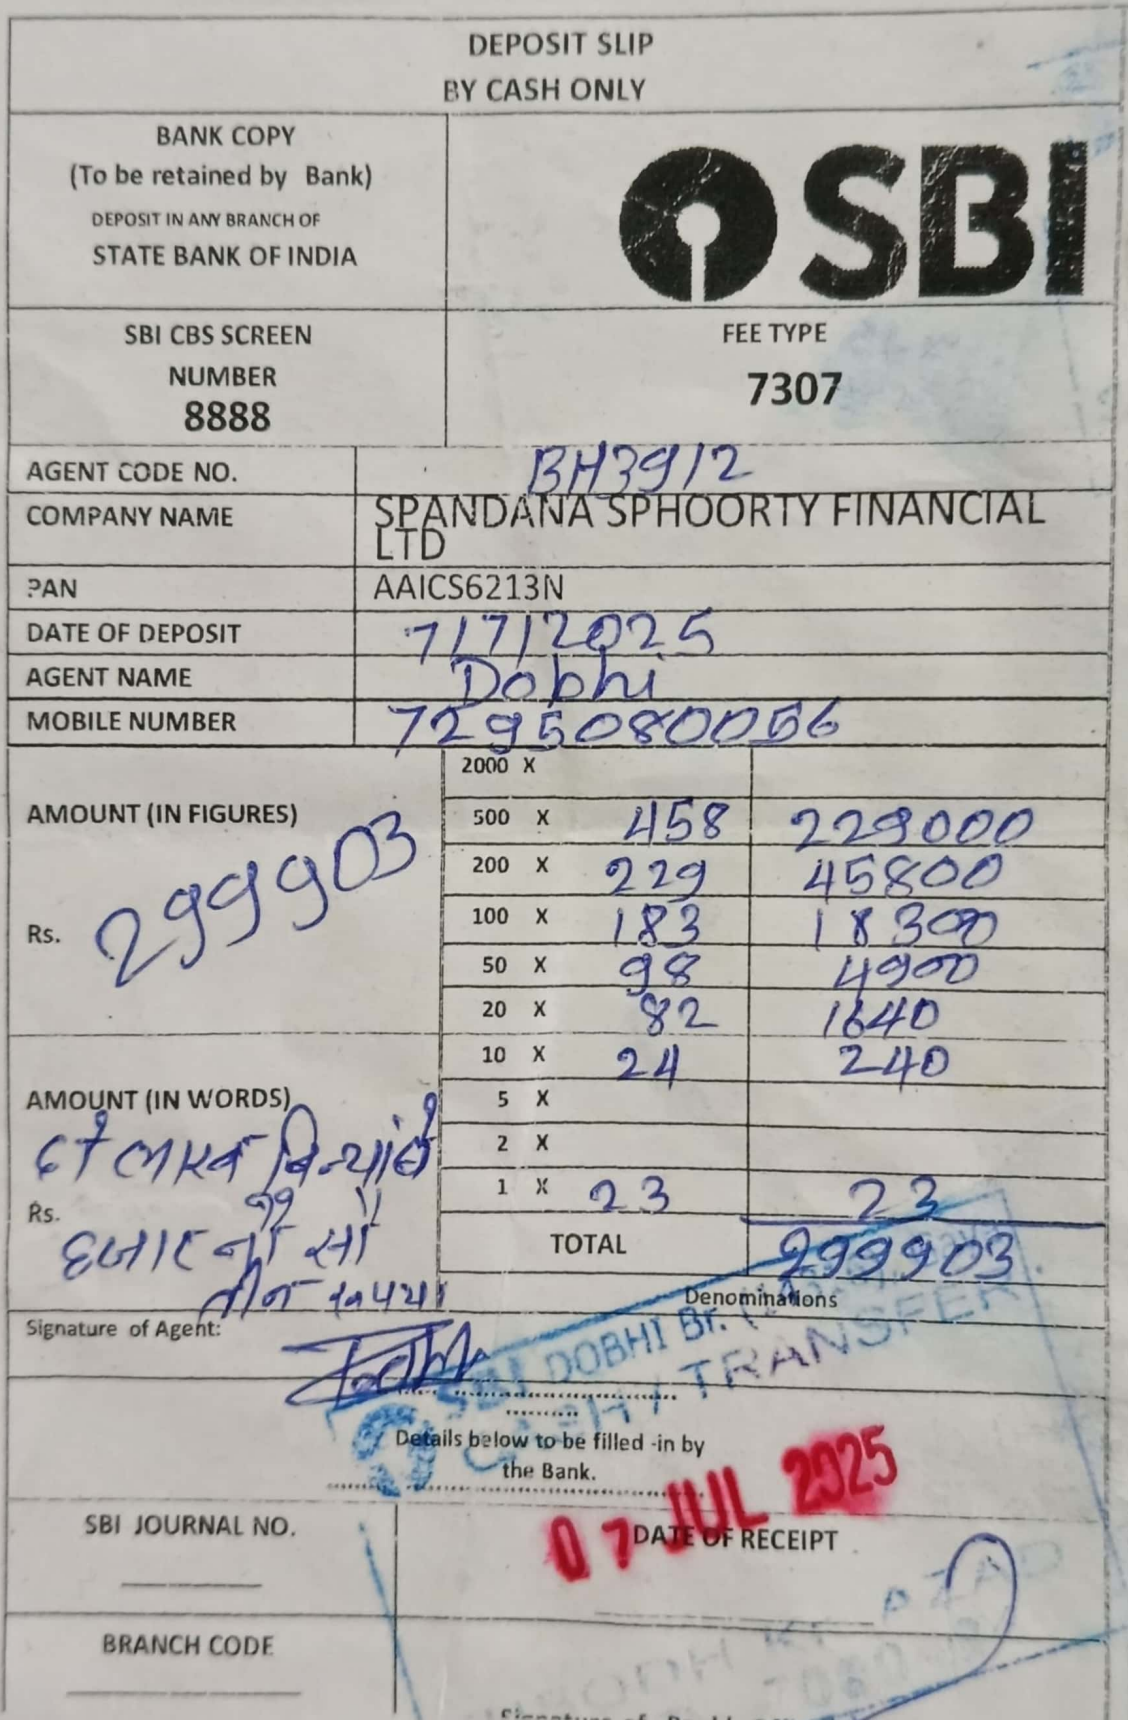 DEPOSIT SLIP
BY CASH ONLY
BANK COPY
(To be retained by Bank)
DEPOSIT IN ANY BRANCH OF
STATE BANK OF INDIA
SBI
SBI CBS SCREEN
NUMBER
8888
FEE TYPE
7307
AGENT CODE NO. BH3912
COMPANY NAME SPANDANA SPHOORTY FINANCIAL
LTD
PAN AAICS6213N
DATE OF DEPOSIT 7/7/2025
AGENT NAME Dobhi
MOBILE NUMBER 7295080056
AMOUNT (IN FIGURES)
Rs. 299903
2000 X
500 X 458 229000
200 X 229 45800
100 X 183 18300
50 X 98 4900
20 X 82 1640
10 X 24 240
5 X
2 X
1 X 23 23
TOTAL 299903
Denominations
AMOUNT (IN WORDS)
Rs.
हजार नौ सौ
तीन रूपया
Signature of Agent:
SBI DOBHI Br.
CASH / TRANSFER
Details below to be filled -in by
the Bank.
07 JUL 2025
SBI JOURNAL NO.
DATE OF RECEIPT
BRANCH CODE